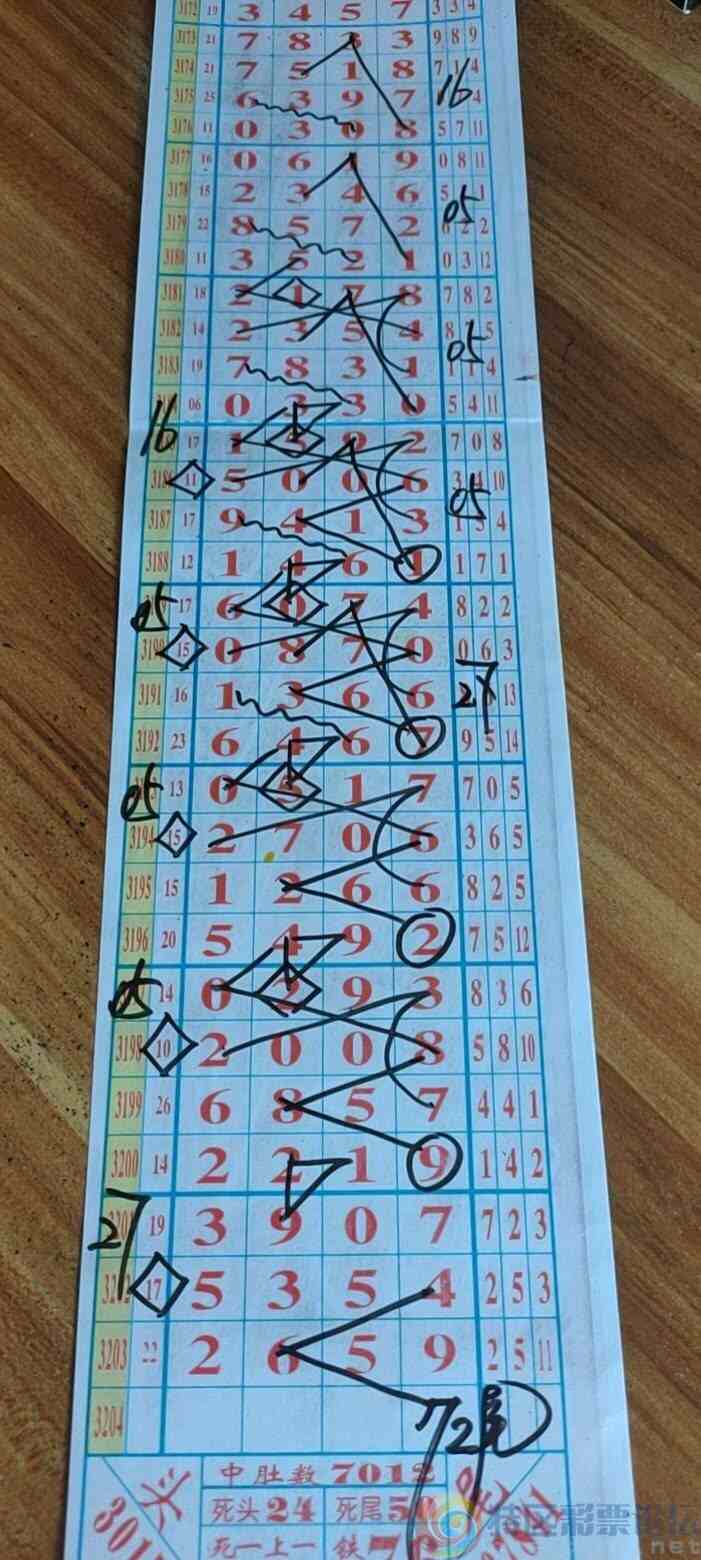 3172 19 3 4 5 7 3 3 4
3173 21 7 8 3 3 9 8 9
3174 21 7 5 1 8 7 1 4
3175 25 6 3 9 7 4
16
3176 11 0 3 0 8 5 7 11
3177 16 0 6 9 0 8 11
3178 15 2 3 4 6 5 1
05
3179 22 8 5 7 2 2 2
3180 11 3 5 2 1 0 3 12
3181 18 2 1 7 8 7 8 2
3182 14 2 3 5 4 8 5
05
3183 19 7 8 3 1 1 4
06 0 3 3 0 5 4 11
16 17 1 5 9 2 7 0 8
3186 11 5 0 0 6 3 4 10
05
3187 17 9 4 1 3 1 5 4
3188 12 1 4 6 1 1 7 1
05 17 6 0 7 4 8 2 2
3190 15 0 8 7 0 0 6 3
3191 16 1 3 6 6 27 13
3192 23 6 4 6 7 9 5 14
05 13 0 5 1 7 7 0 5
3194 15 2 7 0 6 3 6 5
3195 15 1 2 6 6 8 2 5
3196 20 5 4 9 2 7 5 12
05 14 0 2 9 3 8 3 6
3198 10 2 0 0 8 5 8 10
3199 26 6 8 5 7 4 4 1
3200 14 2 2 1 9 1 4 2
27 19 3 9 0 7 7 2 3
17 5 3 5 4 2 5 3
3203 22 2 6 5 9 2 5 11
3204
72尾
中肚数 7012
兴
死头24 死尾5
死一上一 铁7
特区彩票论坛
net